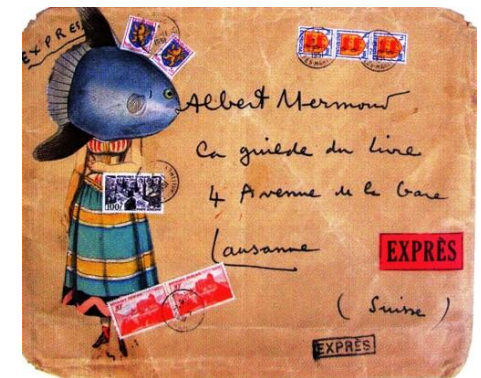 EXPRES
Albert Mermoud
La guilde du livre
4 Avenue de la Gare
Lausanne
EXPRÈS
(Suisse)
EXPRÈS